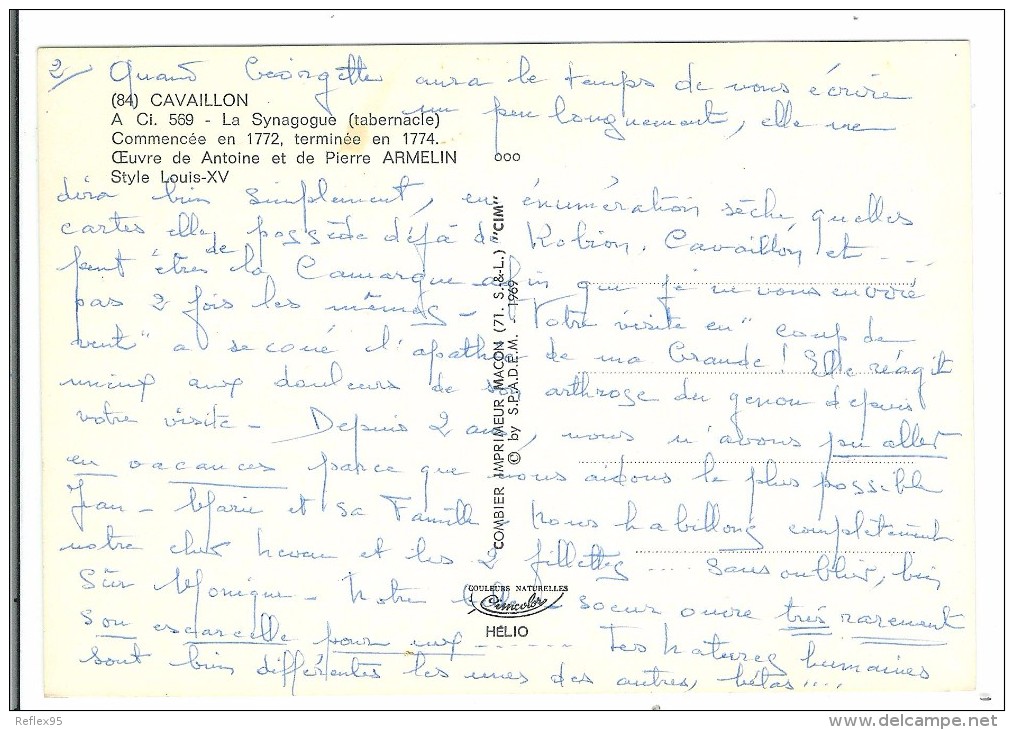 2/ Quand Georgette aura le temps de vous écrire
(84) CAVAILLON
A Ci. 569 - La Synagogue (tabernacle)
Commencée en 1772, terminée en 1774.
Œuvre de Antoine et de Pierre ARMELIN
Style Louis-XV
un peu longuement, elle me
ooo
dira bien simplement, en énumération sèche quelles
cartes elle possède déjà de Robion, Cavaillon et ....
peut être de la Camargue afin que je ne vous envoie
pas 2 fois les mêmes - Votre visite en "coup de
vent" a secoué l'apathie de ma Grande ! Elle réagit
mieux aux douleurs de son arthrose du genou depuis
votre visite - Depuis 2 ans, nous n'avons pu aller
en vacances parce que nous aidons le plus possible
Jean-Marie et sa Famille - Nous habillons complètement
notre cher neveu et les 2 fillettes .... sans oublier, bien
sûr Monique - Notre soeur ouvre très rarement
son escarcelle pour eux ...... Les natures humaines
sont bien différentes les unes des autres, hélas ....
COMBIER IMPRIMEUR MACON (71. S.-&-L.) "CIM"
© by S.P.A.D.E.M. - 1969
COULEURS NATURELLES
Cimcolor
HÉLIO
Reflex95
www.delcampe.net